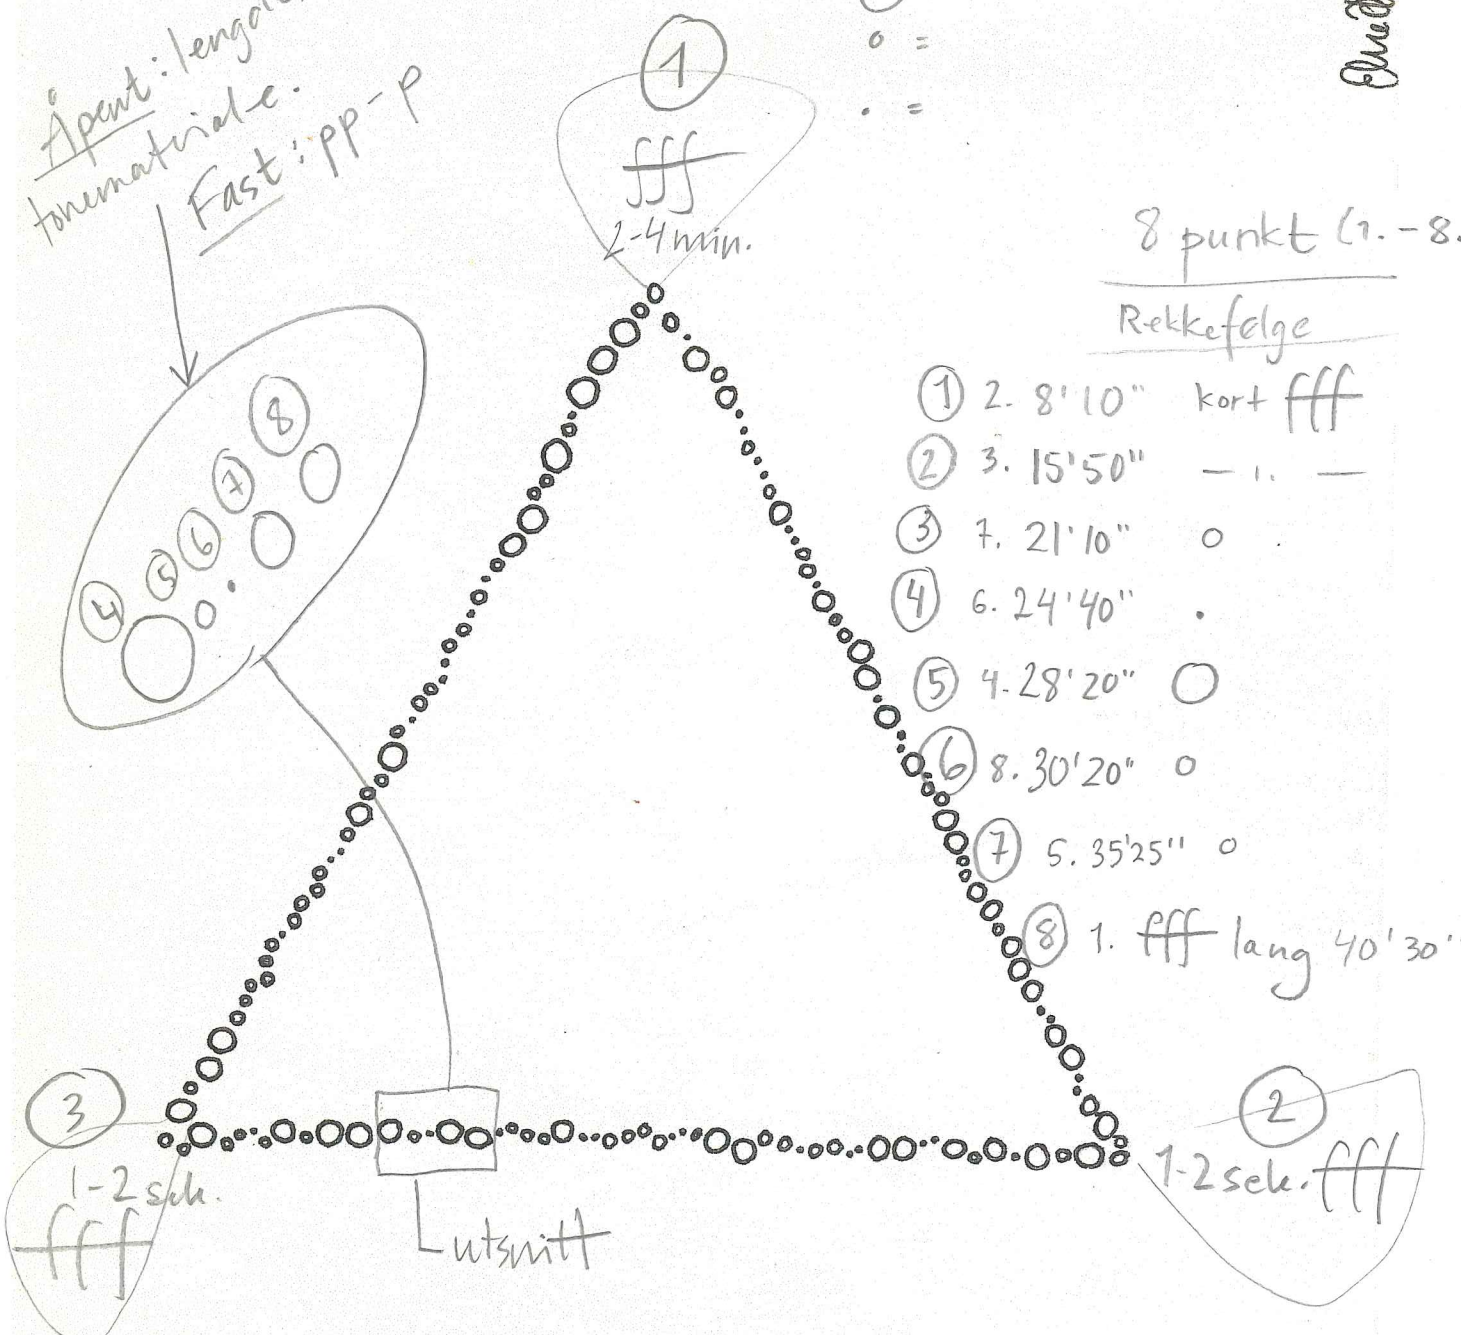 Åpent: lengde,
tonemateriale.
Fast: pp-p
1
fff
2-4 min.
o =
. =
8 punkt (1.-8.
Rekkefølge
1 2. 8'10" kort fff
2 3. 15'50" — ı. —
3 7. 21'10" o
4 6. 24'40" .
5 4. 28'20" O
6 8. 30'20" o
7 5. 35'25" o
8 1. fff lang 40'30"
8
7
6
5
4
3
1-2 sek.
fff
2
1-2 sek. fff
utsnitt